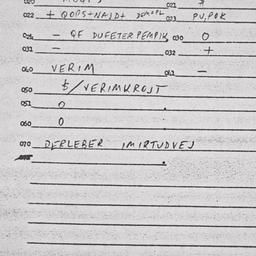 020 021
022 + QOPS+NAJD+ 023 PU,POK
02 - QF DUFETERPEMPIK, 030 O
031 - 032 +
040 VERIM 041 -
050 /VERIMKROJT
051 0
060 0
070 DERLEBER IMIRTUDVEJ